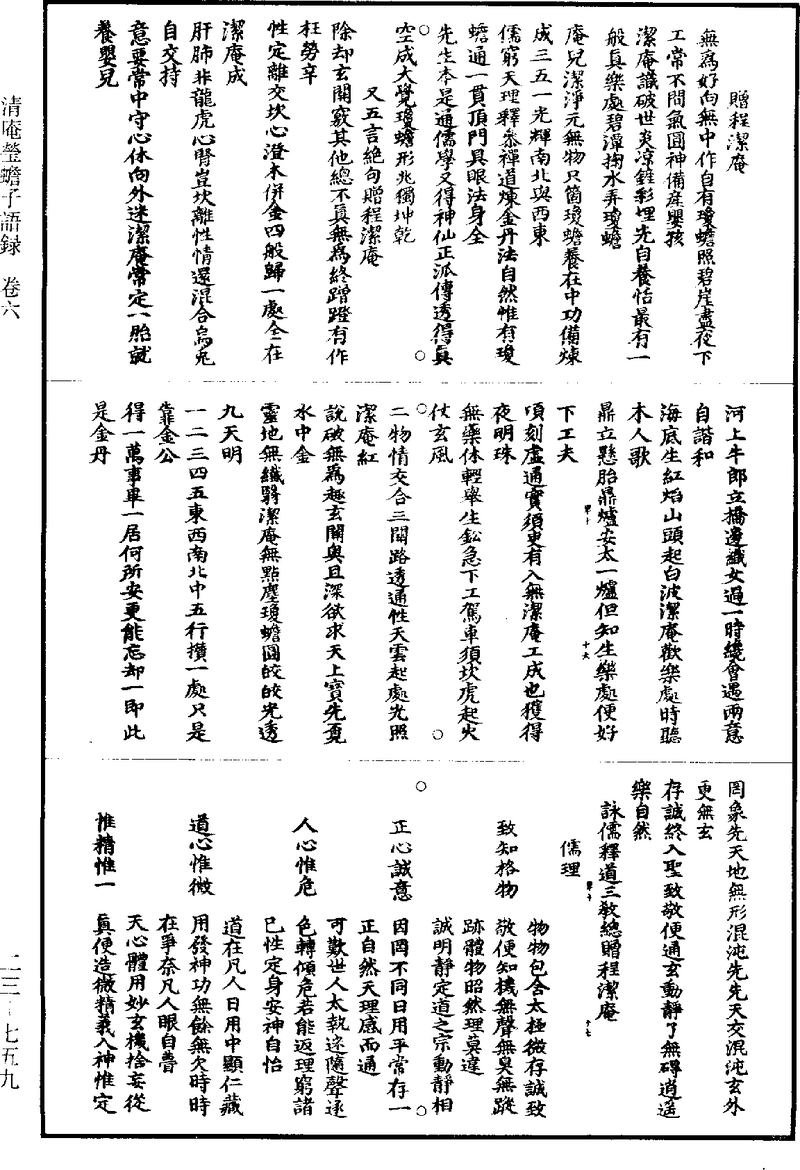 清庵瑩蟾子語録 卷六
二三—七五九
贈程潔庵
無爲好向無中作自有瓊蟾照碧崖盡夜下
工常不問氣圓神備産嬰孩
潔庵識破世炎凉鏟彩埋光自養恬最有一
般真樂處碧潭掬水弄瓊蟾
庵兒潔淨元無物只箇瓊蟾養在中功備煉
成三五一光輝南北與西東
儒窮天理釋叅禪道煉金丹法自然惟有瓊
蟾通一貫頂門具眼法身全
先生本是通儒學又得神仙正派傳透得真
空成大覺瓊蟾形兆獨坤乾
又五言絶句贈程潔庵
除却玄關竅其他總不真無爲終蹭蹬有作
枉勞辛
性定離交坎心澄木併金四般歸一處全在
潔庵成
肝肺非龍虎心腎豈坎離性情還混合烏兔
自交持
意要常中守心休向外迷潔庵常定一胎就
養嬰兒
河上牛郎立橋邊織女過一時纔會遇兩意
自諧和
海底生紅焰山頭起白波潔庵歡樂處時聽
木人歌
鼎立懸胎鼎爐安太一爐但知生樂處便好
下工夫
頃刻虚通實須更有入無潔庵工成也獲得
夜明珠
無藥体輕舉生鈆急下工駕車須坎虎起火
仗玄風
二物情交合三關路透通性天雲起處光照
潔庵紅
說破無爲趣玄關奥且深欲求天上寶先覓
水中金
靈地無纖翳潔庵無點塵瓊蟾圓皎皎光透
九天明
一二三四五東西南北中五行攢一處只是
靠金公
得一萬事畢一居何所安更能忘却一即此
是金丹
罔象先天地無形混沌先先天交混沌玄外
更無玄
存誠終入聖致敬便通玄動靜了無礙逍遥
樂自然
詠儒釋道三教總贈程潔庵
儒理
致知格物
物物包含太極微存誠致
敬便知機無聲無臭無蹤
跡體物昭然理莫違
正心誠意
誠明靜定道之宗動靜相
因罔不同日用平常存一
正自然天理感而通
人心惟危
可歎世人太執迷隨聲逐
色轉傾危若能返理窮諸
己性定身安神自怡
道心惟微
道在凡人日用中顯仁藏
用發神功無餘無欠時時
在爭奈凡人眼自瞢
惟精惟一
天心體用妙玄機捨妄從
真便造微精義入神惟定